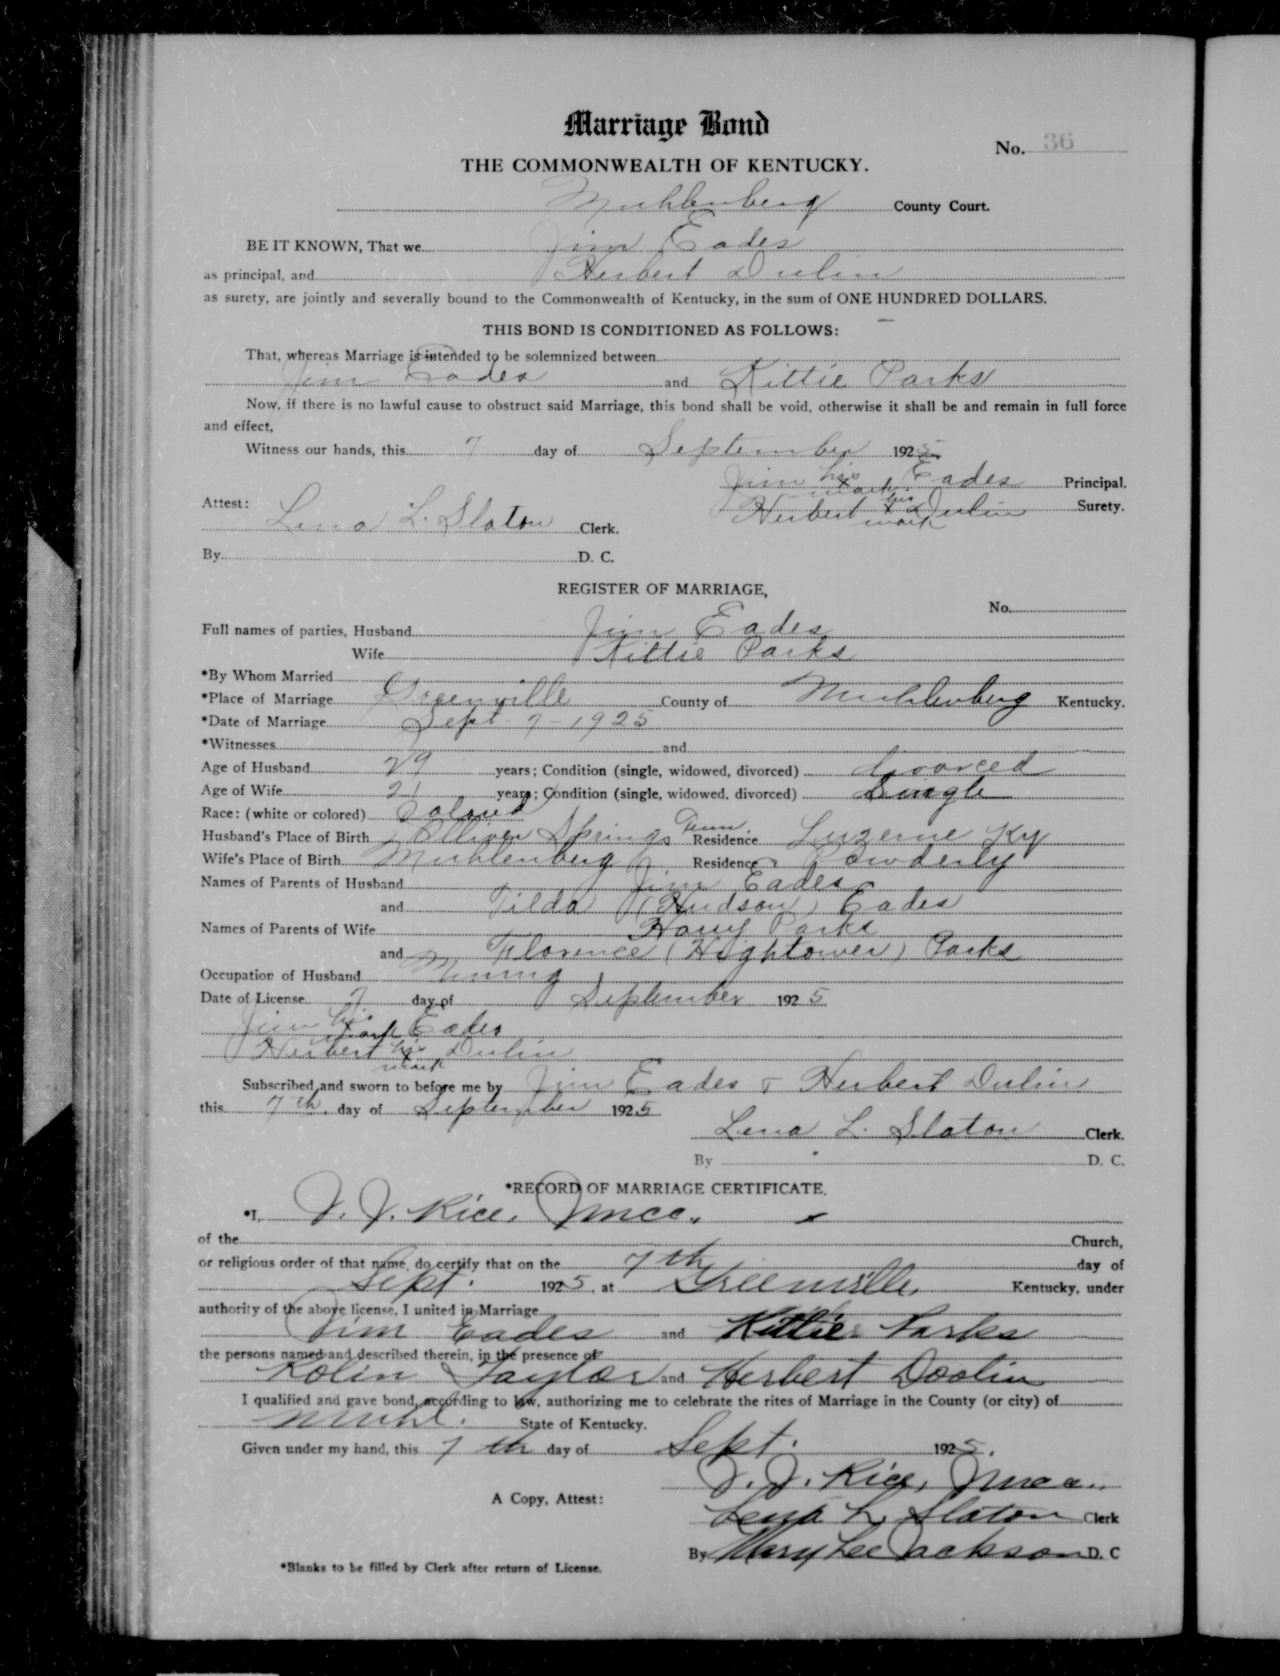 Marriage Bond
No. 36
THE COMMONWEALTH OF KENTUCKY.
Muhlenberg County Court.
BE IT KNOWN, That we Jim Eades
as principal, and Herbert Dulin
as surety, are jointly and severally bound to the Commonwealth of Kentucky, in the sum of ONE HUNDRED DOLLARS.
THIS BOND IS CONDITIONED AS FOLLOWS:
That, whereas Marriage is intended to be solemnized between
Jim Eades and Kittie Parks
Now, if there is no lawful cause to obstruct said Marriage, this bond shall be void, otherwise it shall be and remain in full force
and effect,
Witness our hands, this 7 day of September 1925
Jim his mark Eades Principal.
Herbert his x mark Dulin Surety.
Attest:
Lena L. Slaton Clerk.
By D. C.
REGISTER OF MARRIAGE,
No.
Full names of parties, Husband Jim Eades
Wife Kittie Parks
*By Whom Married
*Place of Marriage Greenville County of Muhlenberg Kentucky.
*Date of Marriage Sept-7-1925
*Witnesses and
Age of Husband 29 years; Condition (single, widowed, divorced) divorced
Age of Wife 21 years; Condition (single, widowed, divorced) Single
Race: (white or colored) Colored
Husband's Place of Birth Olliver Springs Tenn. Residence Luzerne Ky
Wife's Place of Birth Muhlenberg Residence Powderly
Names of Parents of Husband Jim Eades
and Tilda (Hudson) Eades
Names of Parents of Wife Harry Parks
and Florence (Hightower) Parks
Occupation of Husband Mining
Date of License 7 day of September 1925
Jim his mark Eades
Herbert his x mark Dulin
Subscribed and sworn to before me by Jim Eades & Herbert Dulin
this 7th. day of September 1925
Lena L. Slaton Clerk.
By D. C.
*RECORD OF MARRIAGE CERTIFICATE.
*I, J. J. Rice, Jmcc.
of the Church,
or religious order of that name, do certify that on the 7th day of
Sept. 1925, at Greenville, Kentucky, under
authority of the above license, I united in Marriage
Jim Eades and Kittie Parks
the persons named and described therein, in the presence of
Rolin Taylor and Herbert Doolin
I qualified and gave bond, according to law, authorizing me to celebrate the rites of Marriage in the County (or city) of
Muhl. State of Kentucky.
Given under my hand, this 7th day of Sept. 1925.
J. J. Rice, Jmcc.
A Copy, Attest:
Lena L. Slaton Clerk
By Mary Lee Jackson D. C
*Blanks to be filled by Clerk after return of License.